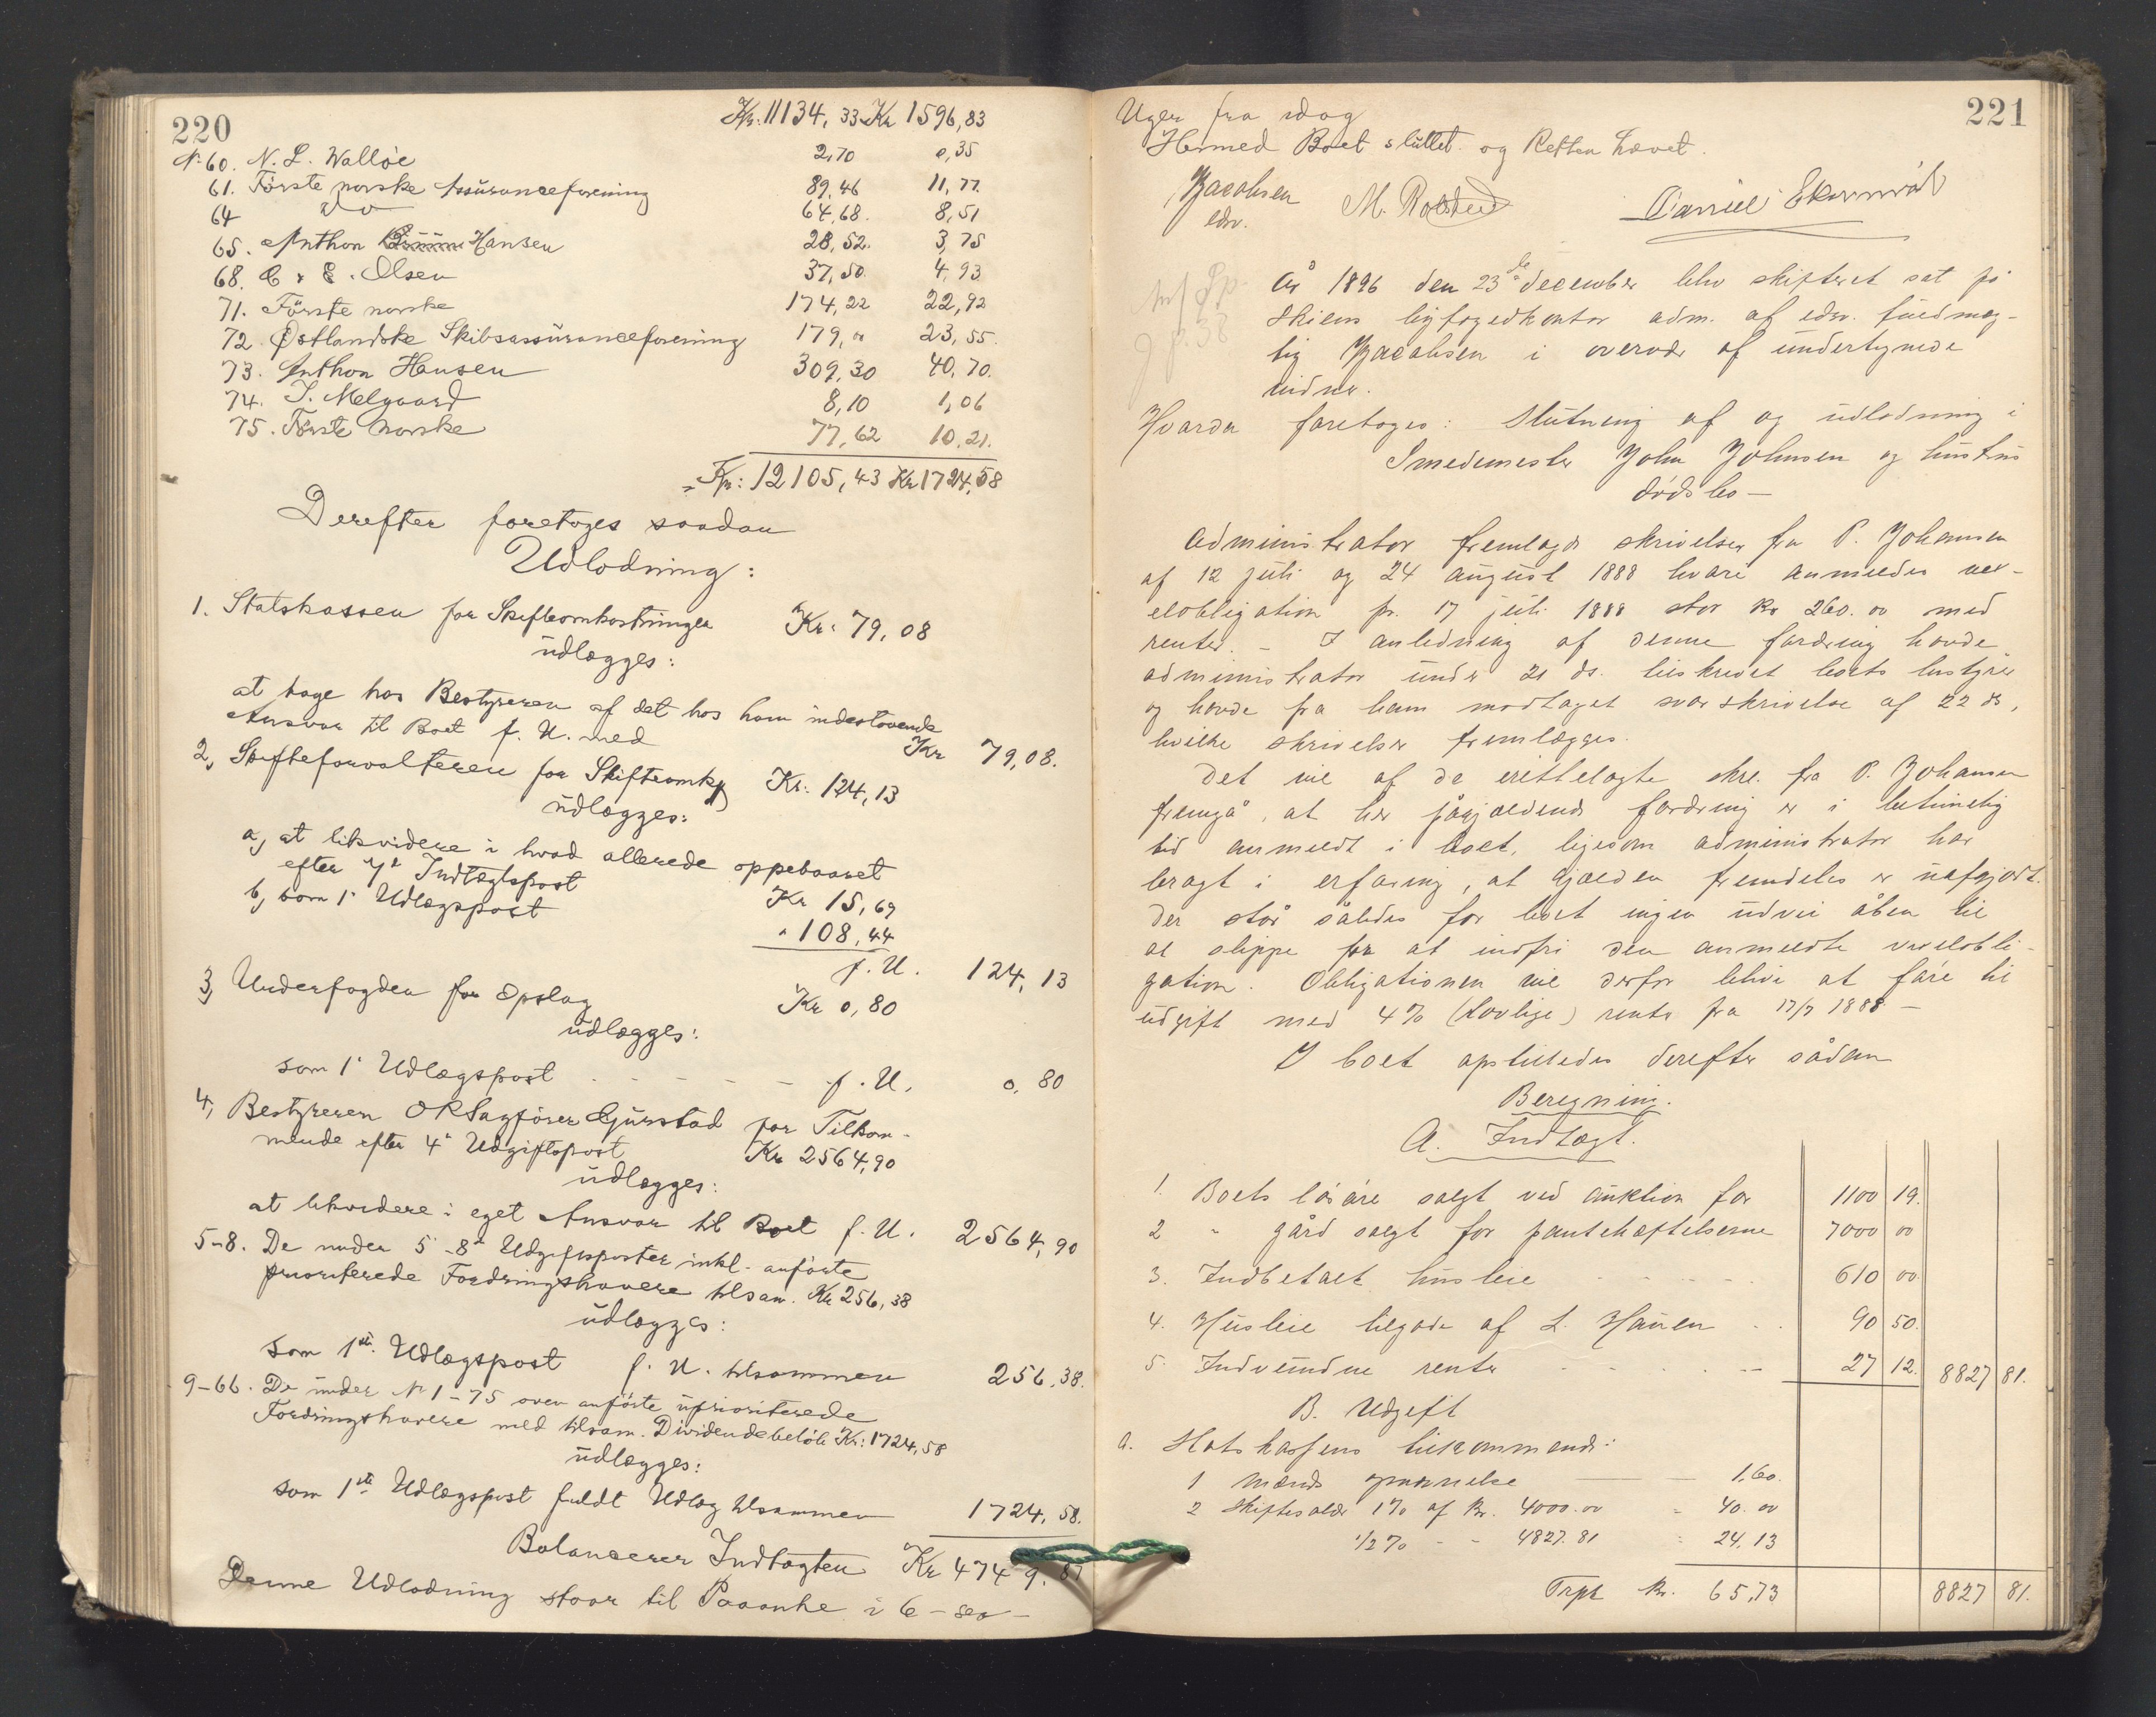 220
Kr. 11134,33 Kr 1596,83
No 60. N. L. Walløe 2,70 0,35
61. Første norske Assuranceforening 89,46 11,77.
64 do 64,68. 8,51
65. Anthon Hansen 28,52. 3,75
68. C & E. Olsen 37,50. 4,93
71. Første norske 174,22 22,92
72. Østlandske Skibsassuranceforening 179,00 23,55.
73. Anthon Hansen 309,30 40,70.
74. I. Melgaard 8,10 1,06
75. Første norske 77,62 10,21.
Kr: 12105,43 Kr 1724,58
Derefter foretoges saadan
Udlodning:
1. Statskassen for Skifteomkostninger Kr. 79,08
udlægges:
at tage hos Bestyreren af det hos ham indestaaende
Ansvar til Boet f. U. med Kr 79,08.
2, Skifteforvalteren for Skifteomk Kr: 124,13
udlægges:
a, at likvidere i hvad allerede oppebaaret
efter 7de Indtægtspost Kr 15,69
b, som 1. Udlægspost " 108,44
f. U. 124,13
3, Underfogden for Opslag Kr 0,80
udlægges:
som 1. Udlægspost - - - - - f. U. 0,80
4, Bestyreren ORSagfører Gjurstad for Tilkom-
mende efter 4de Udgiftspost Kr 2564,90
udlægges:
at likvidere i eget Ansvar til Boet f. U. 2564,90
5-8. De under 5-8de Udgiftsposter inkl. anførte
prioriterede Fordringshavere tilsam. Kr 256,38
udlægges:
som 1ste Udlægspost f. U. tilsammen 256,38.
9-66. De under No 1-75 oven anførte uprioriterede
Fordringshavere med tilsam. Dividendebeløb Kr: 1724,58
udlægges:
som 1ste Udlægspost fuldt Udlæg tilsammen 1724,58.
Balancerer Indtægten Kr 4749,87
Denne Udlodning staar til Paaanke i 6 - sex -
221
Uger fra idag
Hermed Boet sluttet og Retten hævet.
Jacobsen M. Daniel Ekornrød
edsv.
År 1896 den 23de december blev skifteret sat på
Skiens byfogedkontor adm. af edsv. fuldmæg-
tig Jacobsen i overvær af undertegnede
vidner.
Hvorda foretoges: Slutning af og udlodning i
Smedemester John Johnsen og hustrus
dødsbo —
Administrator fremlagde skrivelser fra P. Johansen
af 12 juli og 24 august 1888 hvori anmeldes vex-
elobligation pr. 17 juli 1888 stor kr 260.00 med
renter. - I anledning af denne fordring havde
administrator under 21 ds. tilskrevet boets bestyrer
og havde fra ham modtaget svarskrivelse af 22 ds,
hvilke skrivelser fremlægges.
Det vil af de fra P. Johansen
fremgå, at her pågjældende fordring er i betimelig
tid anmeldt i boet, ligesom administrator har
bragt i erfaring, at gjælden fremdeles er uafgjort.
Der står således for boet ingen udvei åben til
at slippe fra at indfri den anmeldte vexelobli-
gation. Obligationen vil derfor blive at føre til
udgift med 4% (lovlige) rente fra 17/7 1888 —
I boet opstilledes derefter sådan
Beregning.
A. Indtægt.
1. Boets løsøre solgt ved auktion for 1100 19.
2 " gård solgt for pantehæftelserne 7000 00
3. Indbetalt husleie - - - - - 610 00.
4. Husleie tilgode af L. Hansen - - 90 50.
5. Indvundne renter - - - - - 27 12. 8827 81.
B. Udgift
a. Statskassens tilkommende:
1 Mænds opnævnelse — - 1,60.
2 Skiftesalær 1% af kr. 4000.00 = 40.00
1/2% - - 4827.81 = 24,13
Trpt kr. 65,73 8827 81.